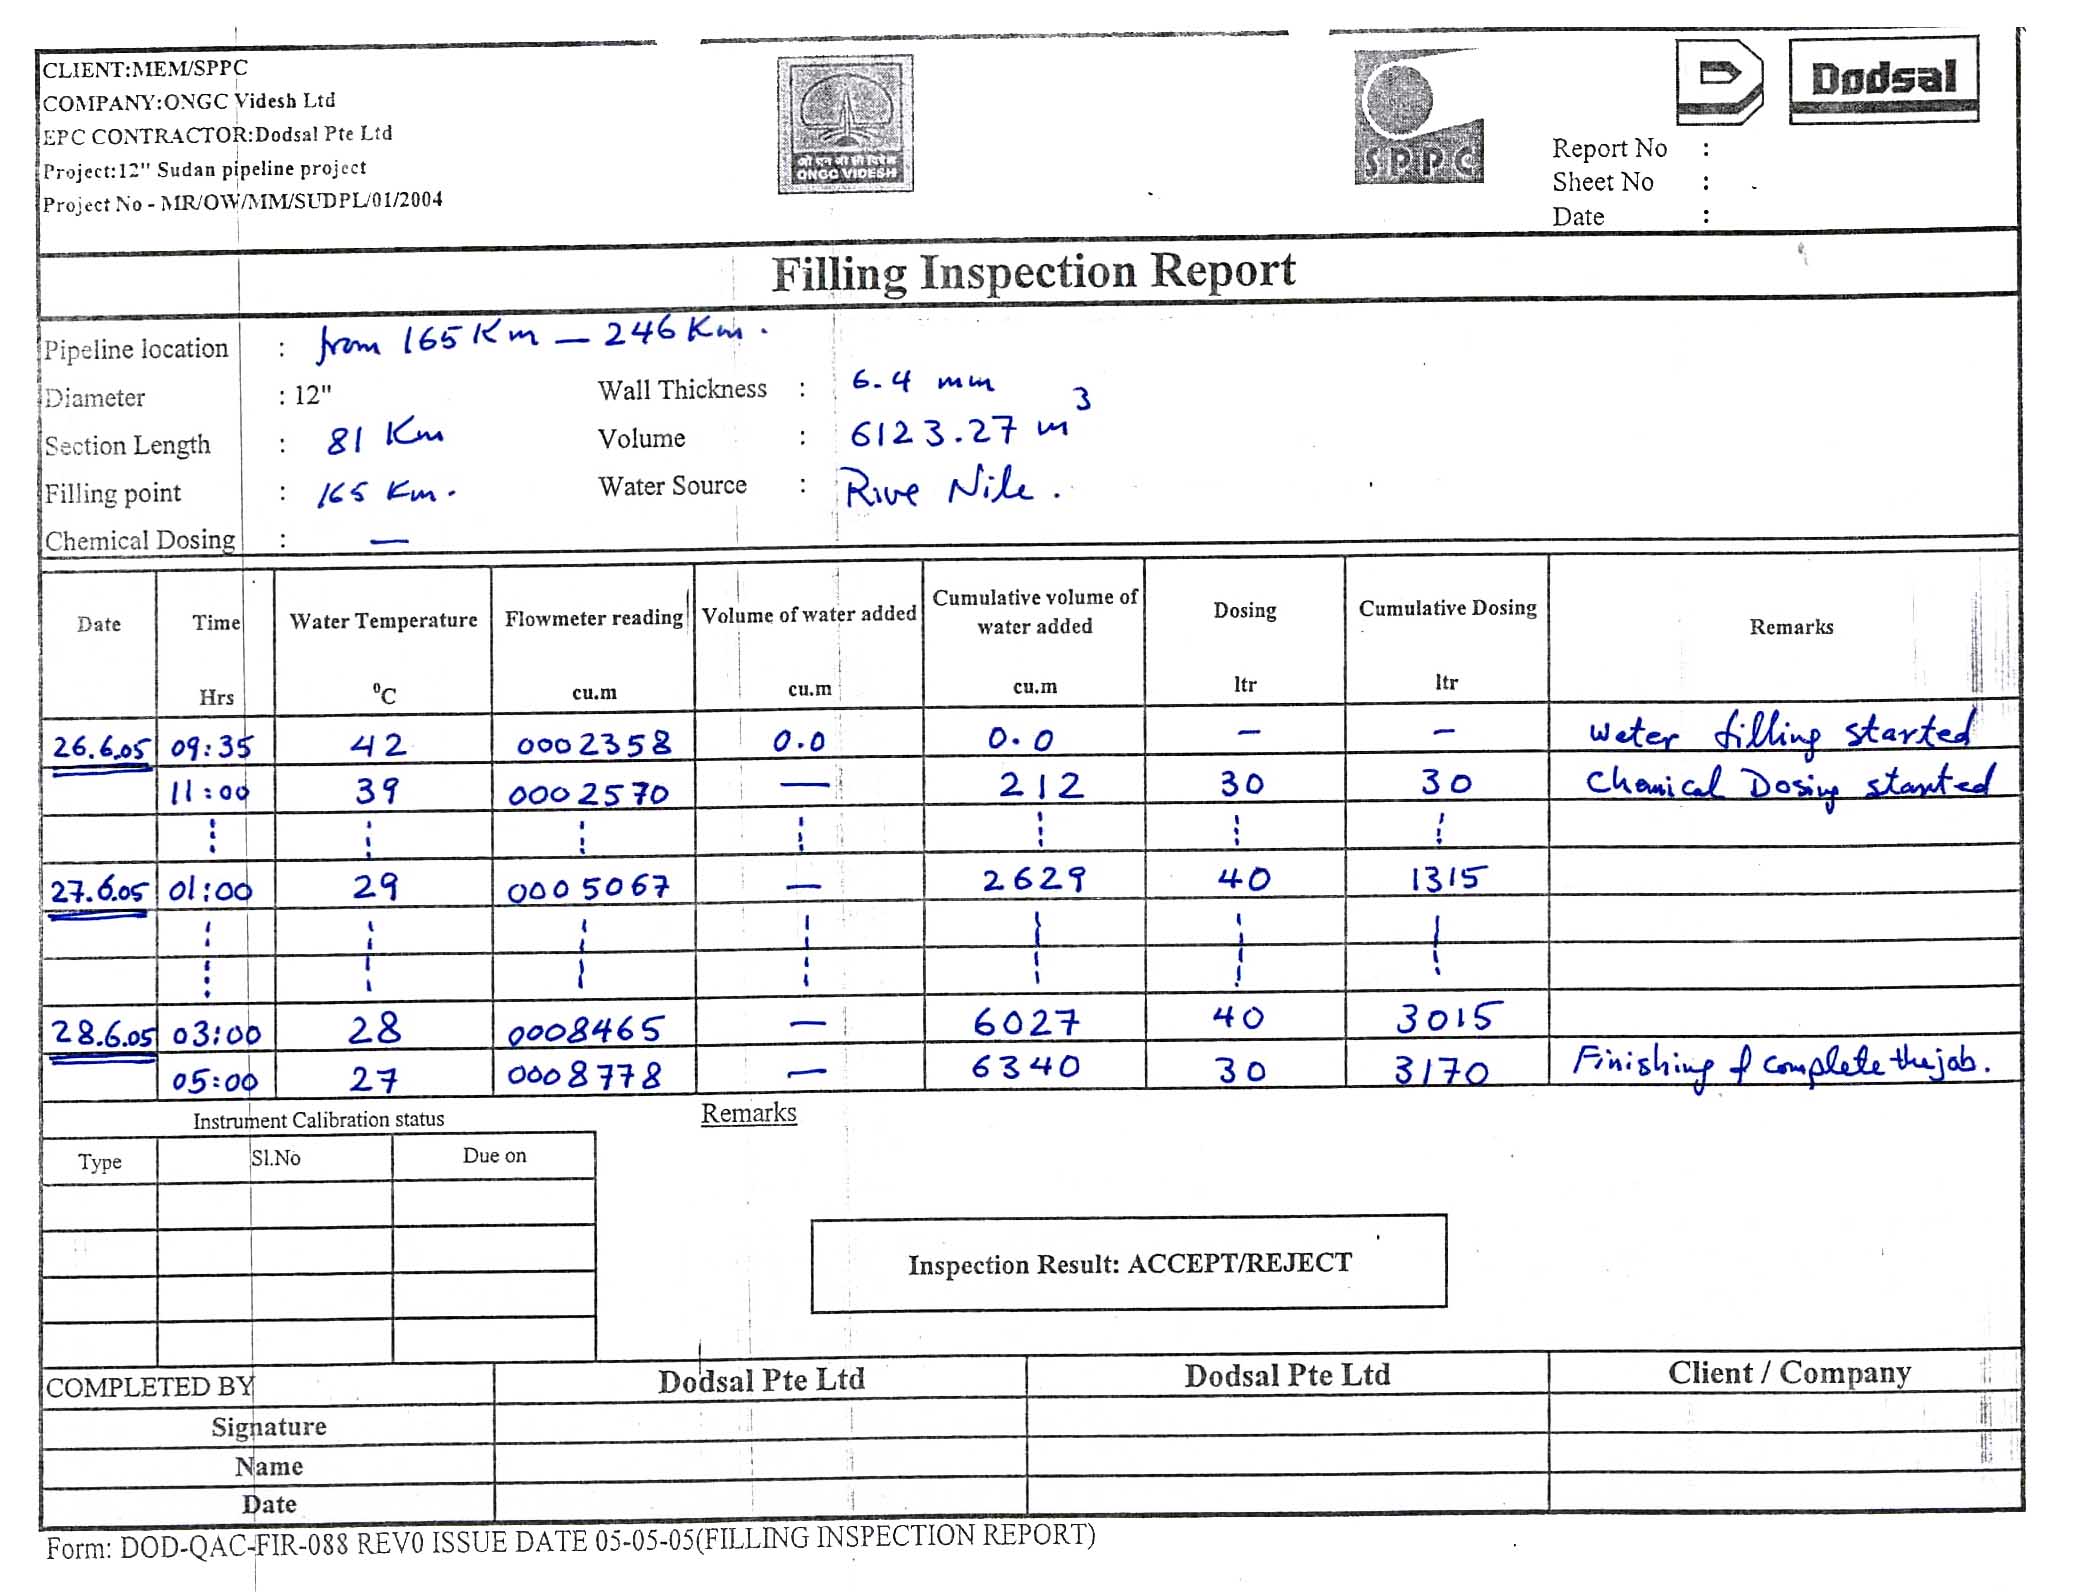 CLIENT:MEM/SPPC
COMPANY:ONGC Videsh Ltd
EPC CONTRACTOR:Dodsal Pte Ltd
Project:12" Sudan pipeline project
Project No - MR/OW/MM/SUDPL/01/2004
ओ एन जी सी विदेश
ONGC VIDESH
SPPC
Dodsal
Report No :
Sheet No :
Date :
Filling Inspection Report
Pipeline location : from 165 Km — 246 Km.
Diameter : 12" Wall Thickness : 6.4 mm
Section Length : 81 Km Volume : 6123.27 m³
Filling point : 165 Km. Water Source : Rive Nile.
Chemical Dosing : —
Date Time Hrs Water Temperature ⁰C Flowmeter reading cu.m Volume of water added cu.m Cumulative volume of water added cu.m Dosing ltr Cumulative Dosing ltr Remarks
26.6.05 09:35 42 0002358 0.0 0.0 — — Water filling started
11:00 39 0002570 — 212 30 30 Chemical Dosing started
27.6.05 01:00 29 0005067 — 2629 40 1315
28.6.05 03:00 28 0008465 — 6027 40 3015
05:00 27 0008778 — 6340 30 3170 Finishing & complete the job.
Instrument Calibration status Remarks
Type Sl.No Due on
Inspection Result: ACCEPT/REJECT
COMPLETED BY Dodsal Pte Ltd Dodsal Pte Ltd Client / Company
Signature
Name
Date
Form: DOD-QAC-FIR-088 REV0 ISSUE DATE 05-05-05(FILLING INSPECTION REPORT)